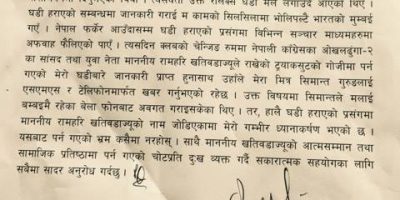 घडी हराएको सम्बन्धमा जानकारी गराई म कामको सिलसिलामा भोलिपल्टै भारतको मुम्बई
गएँ । नेपाल फर्केर आउँदासम्म घडी हराएको प्रसंगमा विभिन्न सञ्चार माध्यमहरुमा
अफवाह फैलिएको पाएँ । त्यसदिन क्लबको चेन्जिङ रुममा नेपाली कांग्रेसका ओखलढुंगा-२
का सांसद एवं युवा नेता माननीय रामहरि खतिवडाज्यूले राखेको ट्र्याकसुटको गोजीमा पर्न
गएको मेरो घडीबारे जानकारी प्राप्त हुनासाथ उहाँले मेरा मित्र सिमान्त गुरुङलाई
एसएमएस र टेलिफोनमार्फत खबर गर्नुभएको रहेछ । उक्त विषयमा सिमान्तले मलाई
बम्बइमै रहेका बेला फोनबाट अवगत गराइसकेका थिए । तर, हालै घडी हराएको प्रसंगमा
माननीय रामहरि खतिवडाज्यूको नाम जोडिएकामा मेरो गम्भीर ध्यानाकर्षण भएको छ ।
यसबाट पर्न गएको भ्रम कसैमा नरहोस् । साथै माननीय खतिवडाज्यूको आत्मसम्मान तथा
सामाजिक प्रतिष्ठामा पर्न गएको चोटप्रति दुःख व्यक्त गर्दै सकारात्मक सहयोगका लागि
सबैमा सादर अनुरोध गर्दछु ।